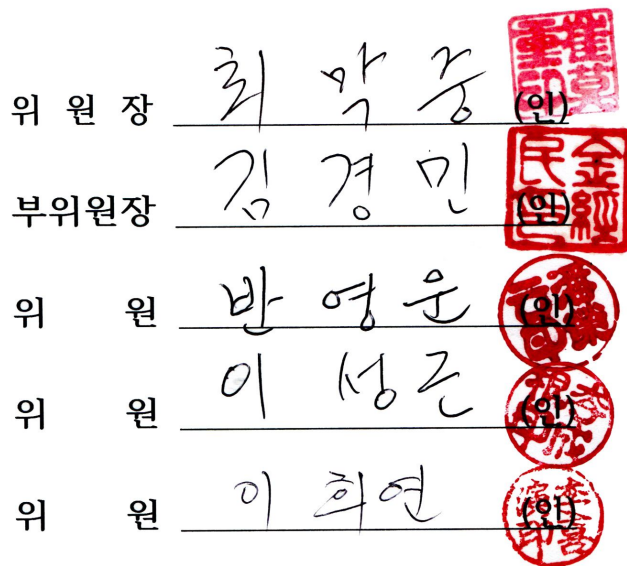 위 원 장 최 막 중 (인)
부위원장 김 경 민 (인)
위 원 반 영 운 (인)
위 원 이 성 근 (인)
위 원 이 희 연 (인)